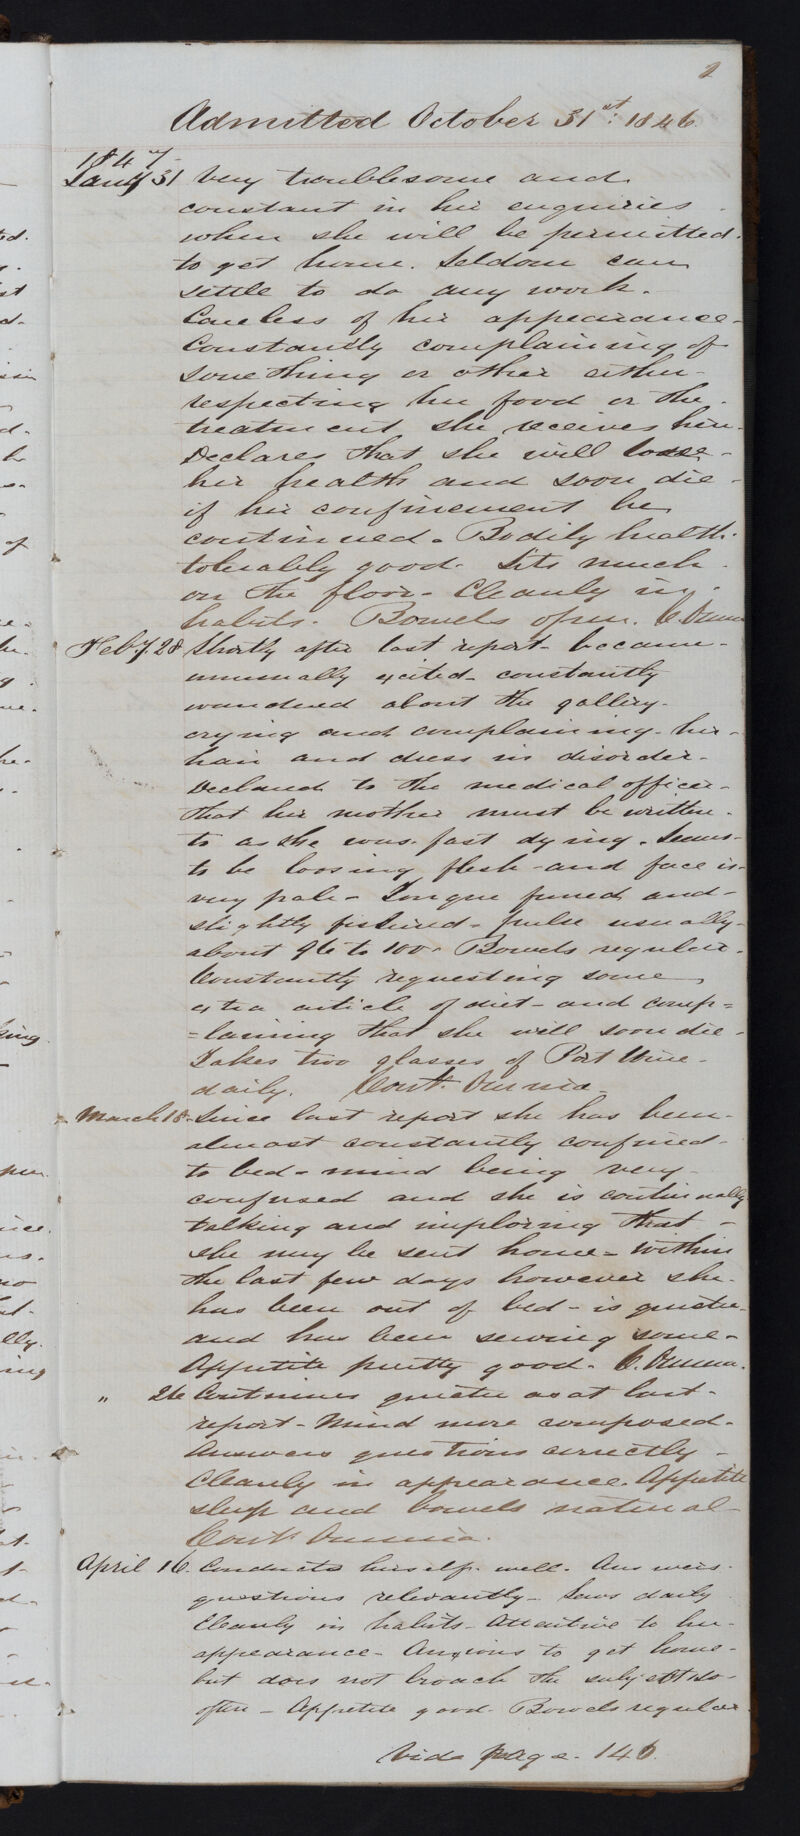 2
Admitted October 31st: 1846.
1847-
Jany 31 Very troublesome and
constant in her enquiries
when she will be permitted
to get home. Seldom can
settle to do any work.
Careless of her appearance-
Constantly complaining of
something or other either-
respecting her food or the
treatment she receives here.
Declares that she will loose-
her health and soon die-
if her confinement be
continued. Bodily health
tolerably good. Sits much
on the floor. Cleanly in
habits. Bowels open. C. Omnia
Feby. 28 Shortly after last report- became-
unusually excited- constantly
wandered about the gallery-
crying and complaining- her-
hair and dress in disorder.
Declared to the medical officer-
that her mother must be written-
to as she was fast dying. Seems-
to be loosing flesh- and face is-
very pale- Tongue furred and-
slightly fissured- pulse usually-
about 96 to 100. Bowels regular.
Constantly requesting some
extra article of diet- and comp=
=laining that she will soon die-
Takes two glasses of Port Wine-
daily. Cont. Omnia-
March 18- Since last report she has been-
almost constantly confined-
to bed- mind being very-
confused and she is continually
talking and imploring that-
she may be sent home- within
the last few days however she-
has been out of bed- is quieter-
and has been sewing some-
Appetite pretty good. C. Omnia.
" 26 Continues quieter as at last-
report- Mind more composed-
Answers questions correctly-
Cleanly in appearance. Appetite
sleep and bowels natural-
Cont. Omnia.
April 16. Conducts herself well. Answers
questions relevantly- Sews daily
Cleanly in habits- Attentive to her-
appearance- Anxious to get home-
but does not broach the subject so-
often- Appetite good. Bowels regular
Vide page 146.